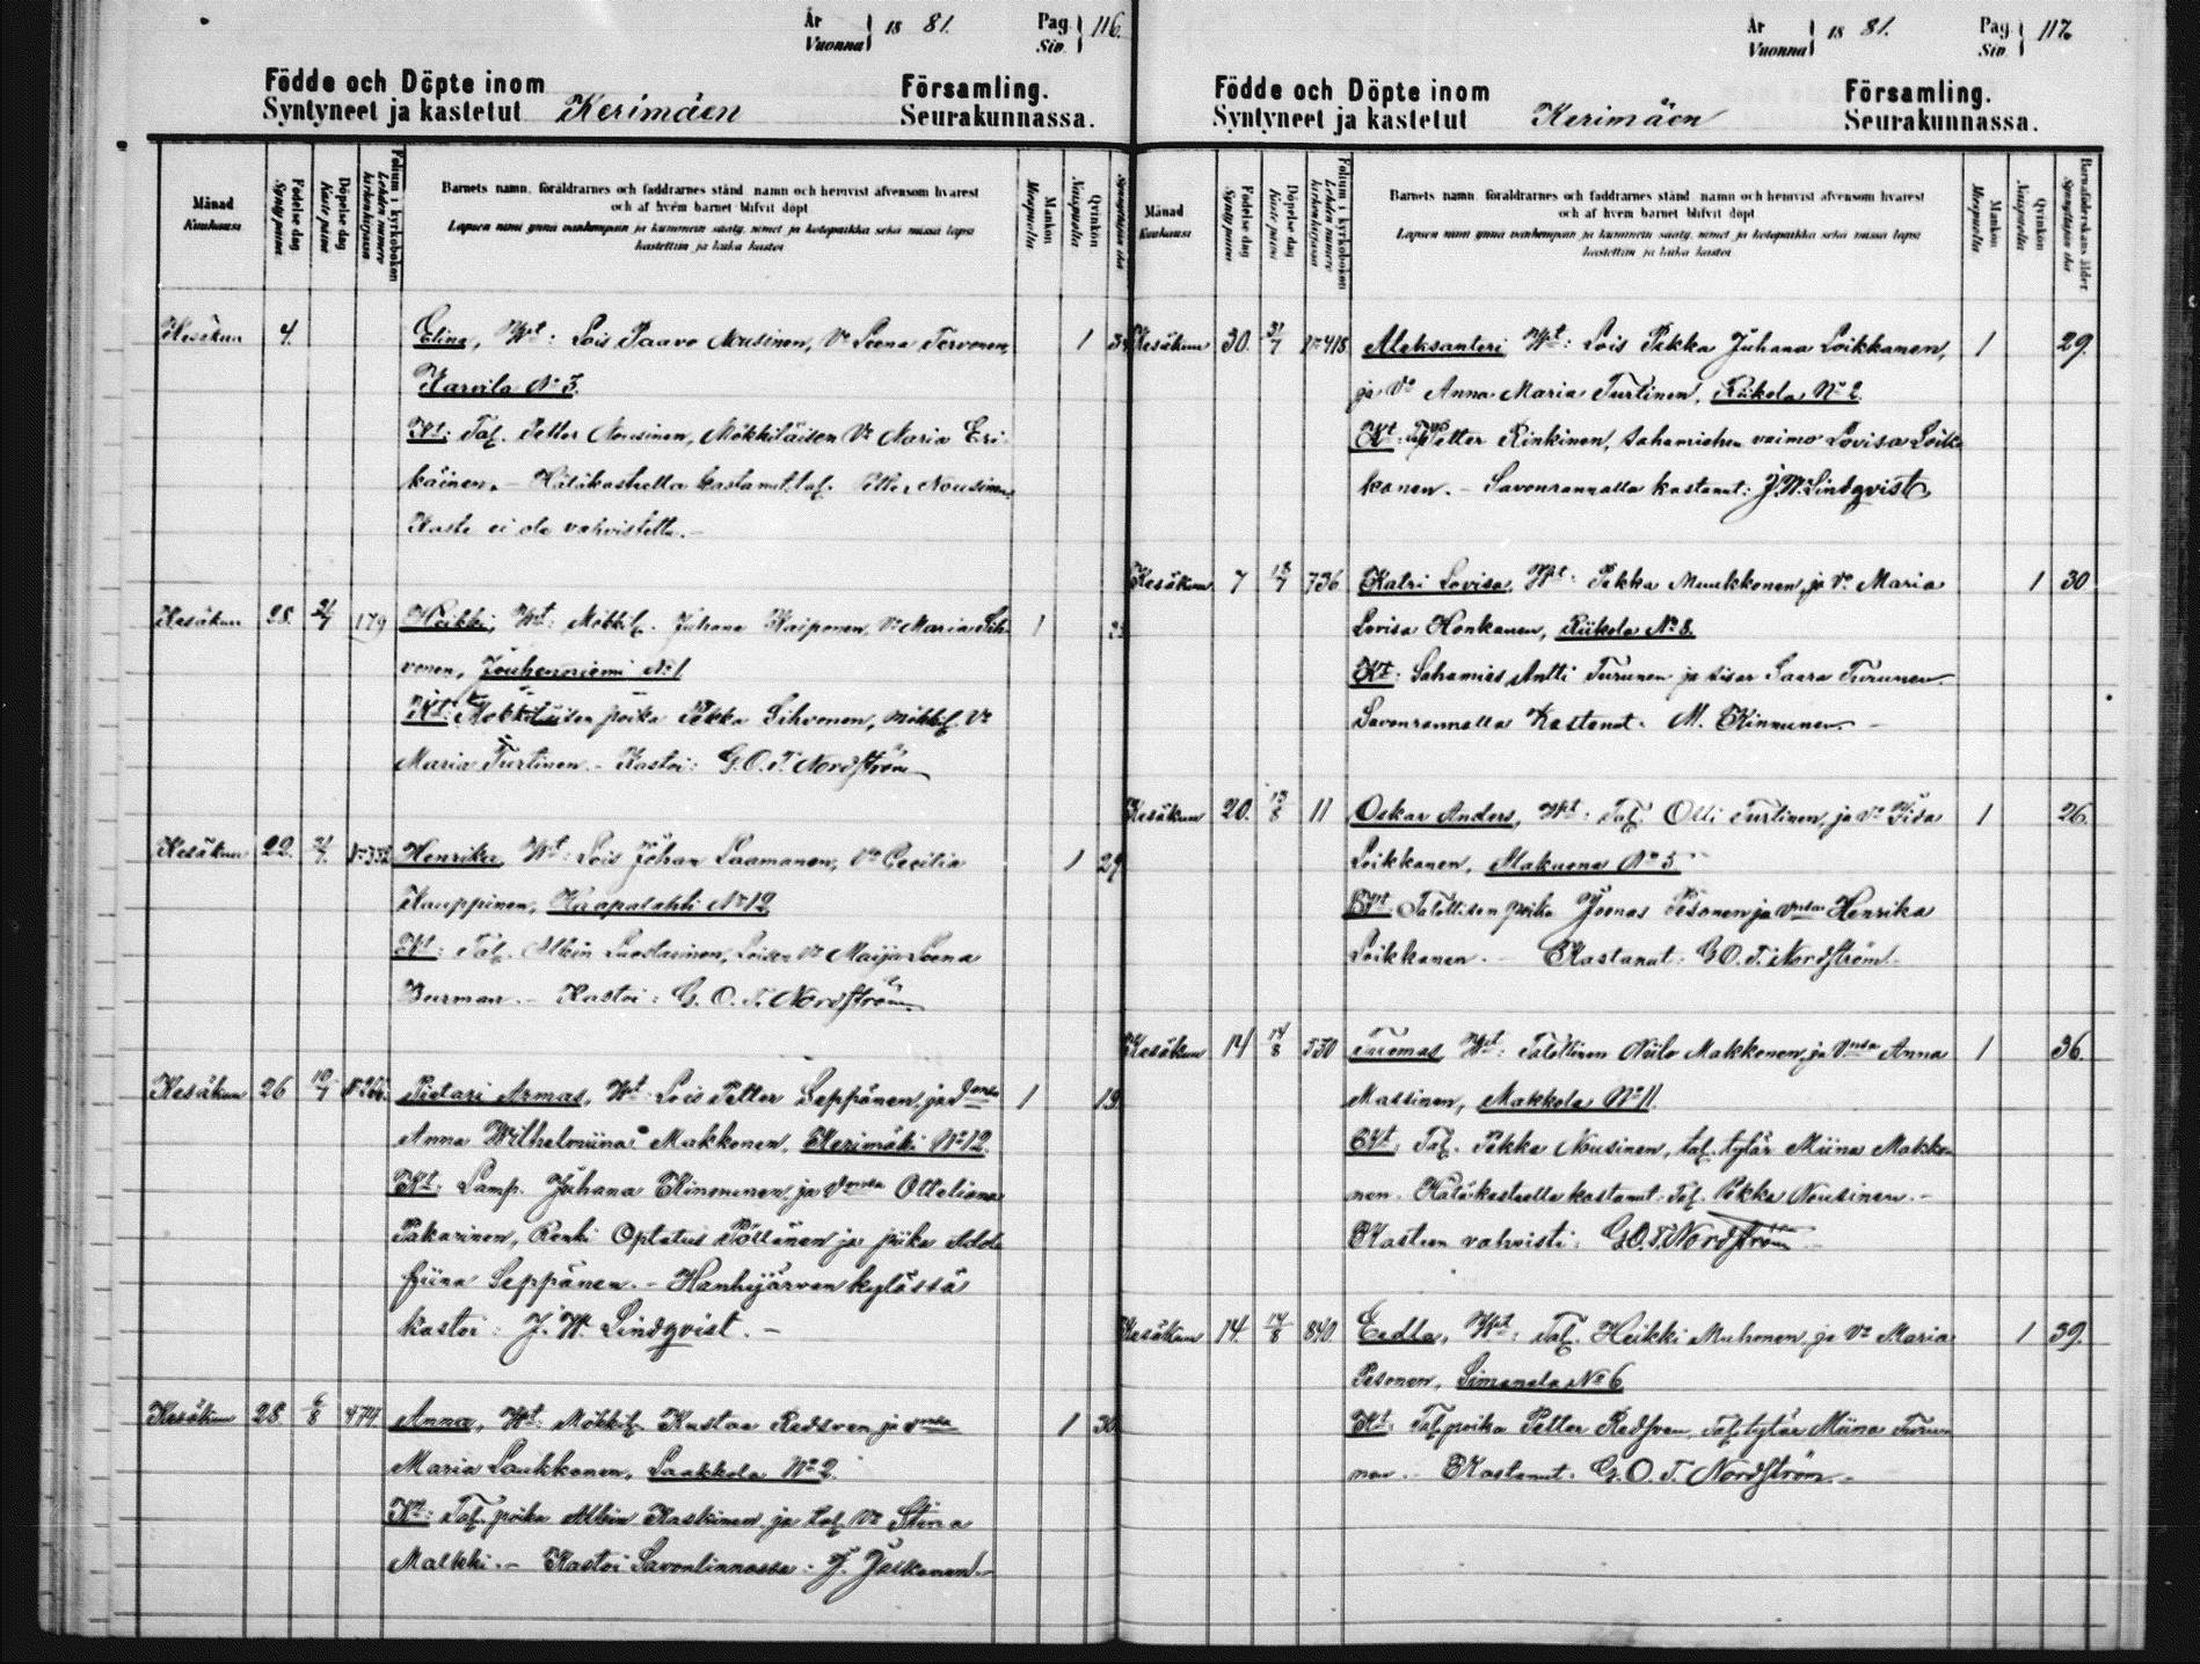 År Vuonna 18 81. Pag. Siv. 116.
Födde och Döpte inom Församling.
Syntyneet ja kastetut Kerimäen Seurakunnassa.
Månad Kuukausi
Födelse dag Synty päivä
Döpelse dag Kaste päivä
Folium i kyrkoboken Lehden numero kirkonkirjassa
Barnets namn, föräldrarnes och faddrarnes stånd, namn och hemvist äfvensom hvarest
och af hvem barnet blifvit döpt
Lapsen nimi ynnä vanhempain ja kummein sääty, nimet ja kotopaikka sekä missä lapsi
kastettiin ja kuka kastoi
Mankön Miespuolia
Qvinkön Naispuolia
Kesäkuu 4. Elina, Wt: Lois Paavo Nousinen, Vo Leena Tervonen, 1
Karvila No 3.
Kt: Tal. Petter Nousinen, Mökkiläisen Vo Maria Eri-
käinen. - Hätäkasteella kastanut tal. Petter Nousinen.
Kaste ei ole vahvistettu. -
Kesäkuu 28. 2/7 179 Heikki, Wt: Mökkil. Juhana Kaiponen, Vo Maria Sih- 1
vonen, Jouhenniemi No 1
Kt: Mökkiläisen poika Pekka Sihvonen, mökkil. Vo
Maria Turtinen. - Kastoi: G. O. T. Nordström
Kesäkuu 22. 2/7. Henrika, Wt: Lois Johan Laamanen, Vo Cecilia 1 29
Kauppinen, Haapalahti No 12
Kt: Tal. Albin Luostarinen, Loisen Vo Maija Leena
Burman. - Kastoi: G. O. T. Nordström
Kesäkuu 26 10/7 Pietari Armas, Wt: Lois Petter Seppänen, ja Vmsa 1 19
Anna Wilhelmiina Makkonen, Kerimäki No 12.
Kt: Lamp. Juhana Kinnunen, ja Vmsa Otteliana
Pakarinen, Renki Optatus Pöllänen ja piika Adol-
fiina Seppänen. - Hanhijärven kylässä
kastoi: J. W. Lindqvist. -
Kesäkuu 28. 6/8 474 Anna, Wt: Mökkil. Kustaa Redsven ja Vmsa 1 30
Maria Laukkanen, Laakkola No 2.
Kt: Tal. poika Albin Kaskinen ja tal. Vo Stina
Malkki. - Kastoi Savonlinnassa: J. Jaskanen. -
År Vuonna 18 81. Pag. Siv. 117.
Födde och Döpte inom Församling.
Syntyneet ja kastetut Kerimäen Seurakunnassa.
Månad Kuukausi
Födelse dag Synty päivä
Döpelse dag Kaste päivä
Folium i kyrkoboken Lehden numero kirkonkirjassa
Barnets namn, föräldrarnes och faddrarnes stånd, namn och hemvist äfvensom hvarest
och af hvem barnet blifvit döpt
Lapsen nimi ynnä vanhempain ja kummein sääty, nimet ja kotopaikka sekä missä lapsi
kastettiin ja kuka kastoi
Mankön Miespuolia
Qvinkön Naispuolia
Barnaföderskans ålder Synnyttäjän ikä
Kesäkuu 30. 31/7 Aleksanteri Wt: Lois Pekka Juhana Loikkanen, 1 29.
ja Vo Anna Maria Turtinen, Riikola No 2.
Kt: Petter Rinkinen, Sahamiehen vaimo Lovisa Loik-
kanen. - Savonrannalla kastanut: J. W. Lindqvist
Kesäkuu 7 18/7 736 Katri Lovisa, Wt: Pekka Muukkonen, ja Vo Maria 1 30
Lovisa Honkanen, Riikola No 8.
Kt: Sahamies Antti Turunen ja sisar Saara Turunen
Savonrannalla Kastanut: M. Kinnunen. -
Kesäkuu 20. 13/8 11 Oskar Anders, Wt: Tal. Olli Turtinen, ja Vo Iida 1 26.
Loikkanen, Makuona No 5
Kt: Talollisen poika Joonas Pesonen ja Vmsa Henrika
Loikkanen. - Kastanut: G. O. T. Nordström
Kesäkuu 14 14/8 530 Tuomas, Wt: Talollinen Niilo Makkonen, ja Vmsa Anna 1 36.
Massinen, Makkola No 11.
Kt: Tal. Pekka Nousinen, tal. tytär Miina Makko-
nen. Hätäkasteella kastanut: Tal. Pekka Nousinen. -
Kasteen vahvisti: G. O. T. Nordström -
Kesäkuu 14. 14/8 840. Eedla, Wt: Tal. Heikki Muhonen, ja Vo Maria 1 39.
Pesonen, Simanala No 6
Kt: Tal. poika Petter Redsven, Tal. tytär Miina Turu-
nen. - Kastanut: G. O. T. Nordström. -